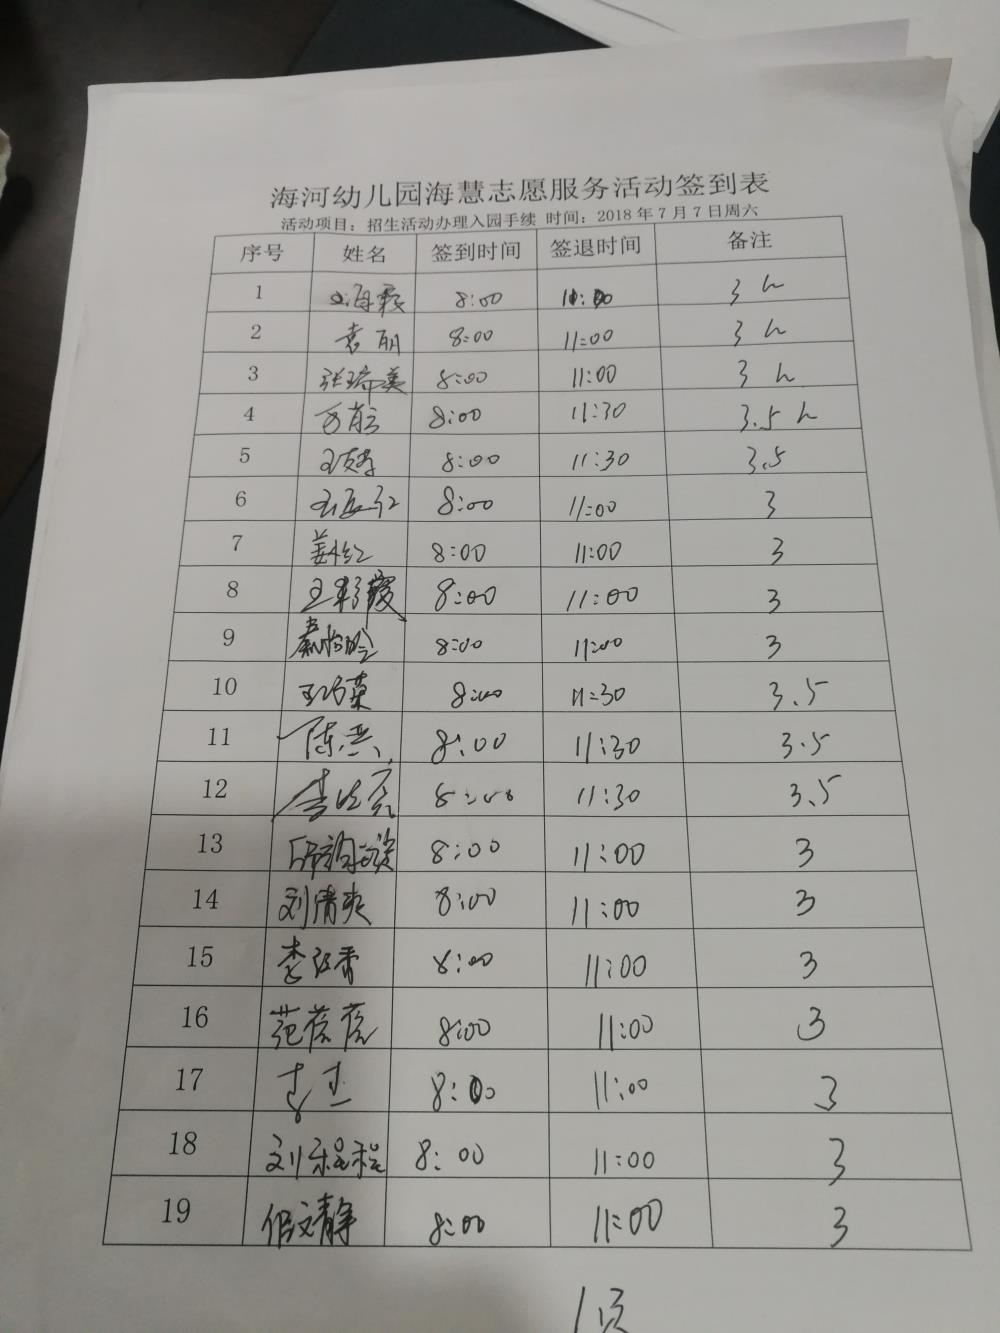 海河幼儿园海慧志愿服务活动签到表
活动项目：招生活动办理入园手续 时间：2018年7月7日周六
序号 姓名 签到时间 签退时间 备注
1 8:00 11:00 3 h
2 袁丽 8:00 11:00 3 h
3 张瑞英 8:00 11:00 3 h
4 8:00 11:30 3.5 h
5 8:00 11:30 3.5
6 8:00 11:00 3
7 姜红 8:00 11:00 3
8 王彩霞 8:00 11:00 3
9 8:00 11:00 3
10 8:00 11:30 3.5
11 8:00 11:30 3.5
12 8:00 11:30 3.5
13 8:00 11:00 3
14 刘清爽 8:00 11:00 3
15 8:00 11:00 3
16 范蓓蓓 8:00 11:00 3
17 8:00 11:00 3
18 刘程程 8:00 11:00 3
19 文静 8:00 11:00 3
1页